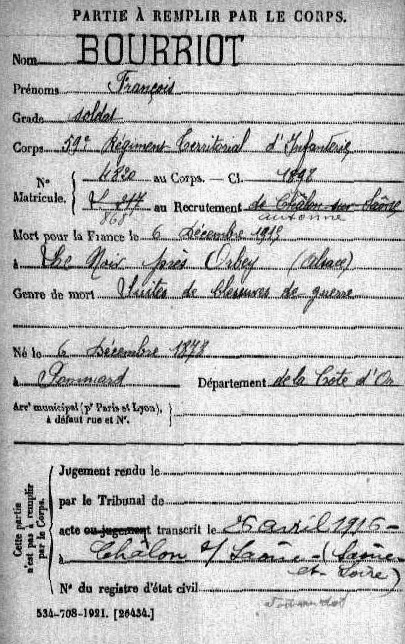 PARTIE À REMPLIR PAR LE CORPS.
Nom BOURRIOT
Prénoms François
Grade soldat
Corps 59e Régiment Territorial d'Infanterie
N° Matricule. { 4820 au Corps. — Cl. 1898
au Recrutement de Châlon sur Saône
868 autonne
Mort pour la France le 6 Décembre 1915
à Lac Noir près Orbey (Alsace)
Genre de mort Suites de blessures de guerre
Né le 6 Décembre 1878
à Pommard Département de la Côte d'Or
Arrt municipal (pr Paris et Lyon), à défaut rue et N°. }
Cette partie n'est pas à remplir par le Corps.
Jugement rendu le
par le Tribunal de
acte ou jugement transcrit le 26 avril 1916
à Châlon s/ Saône (Saône et Loire)
N° du registre d'état civil
534-708-1921. [26434.]